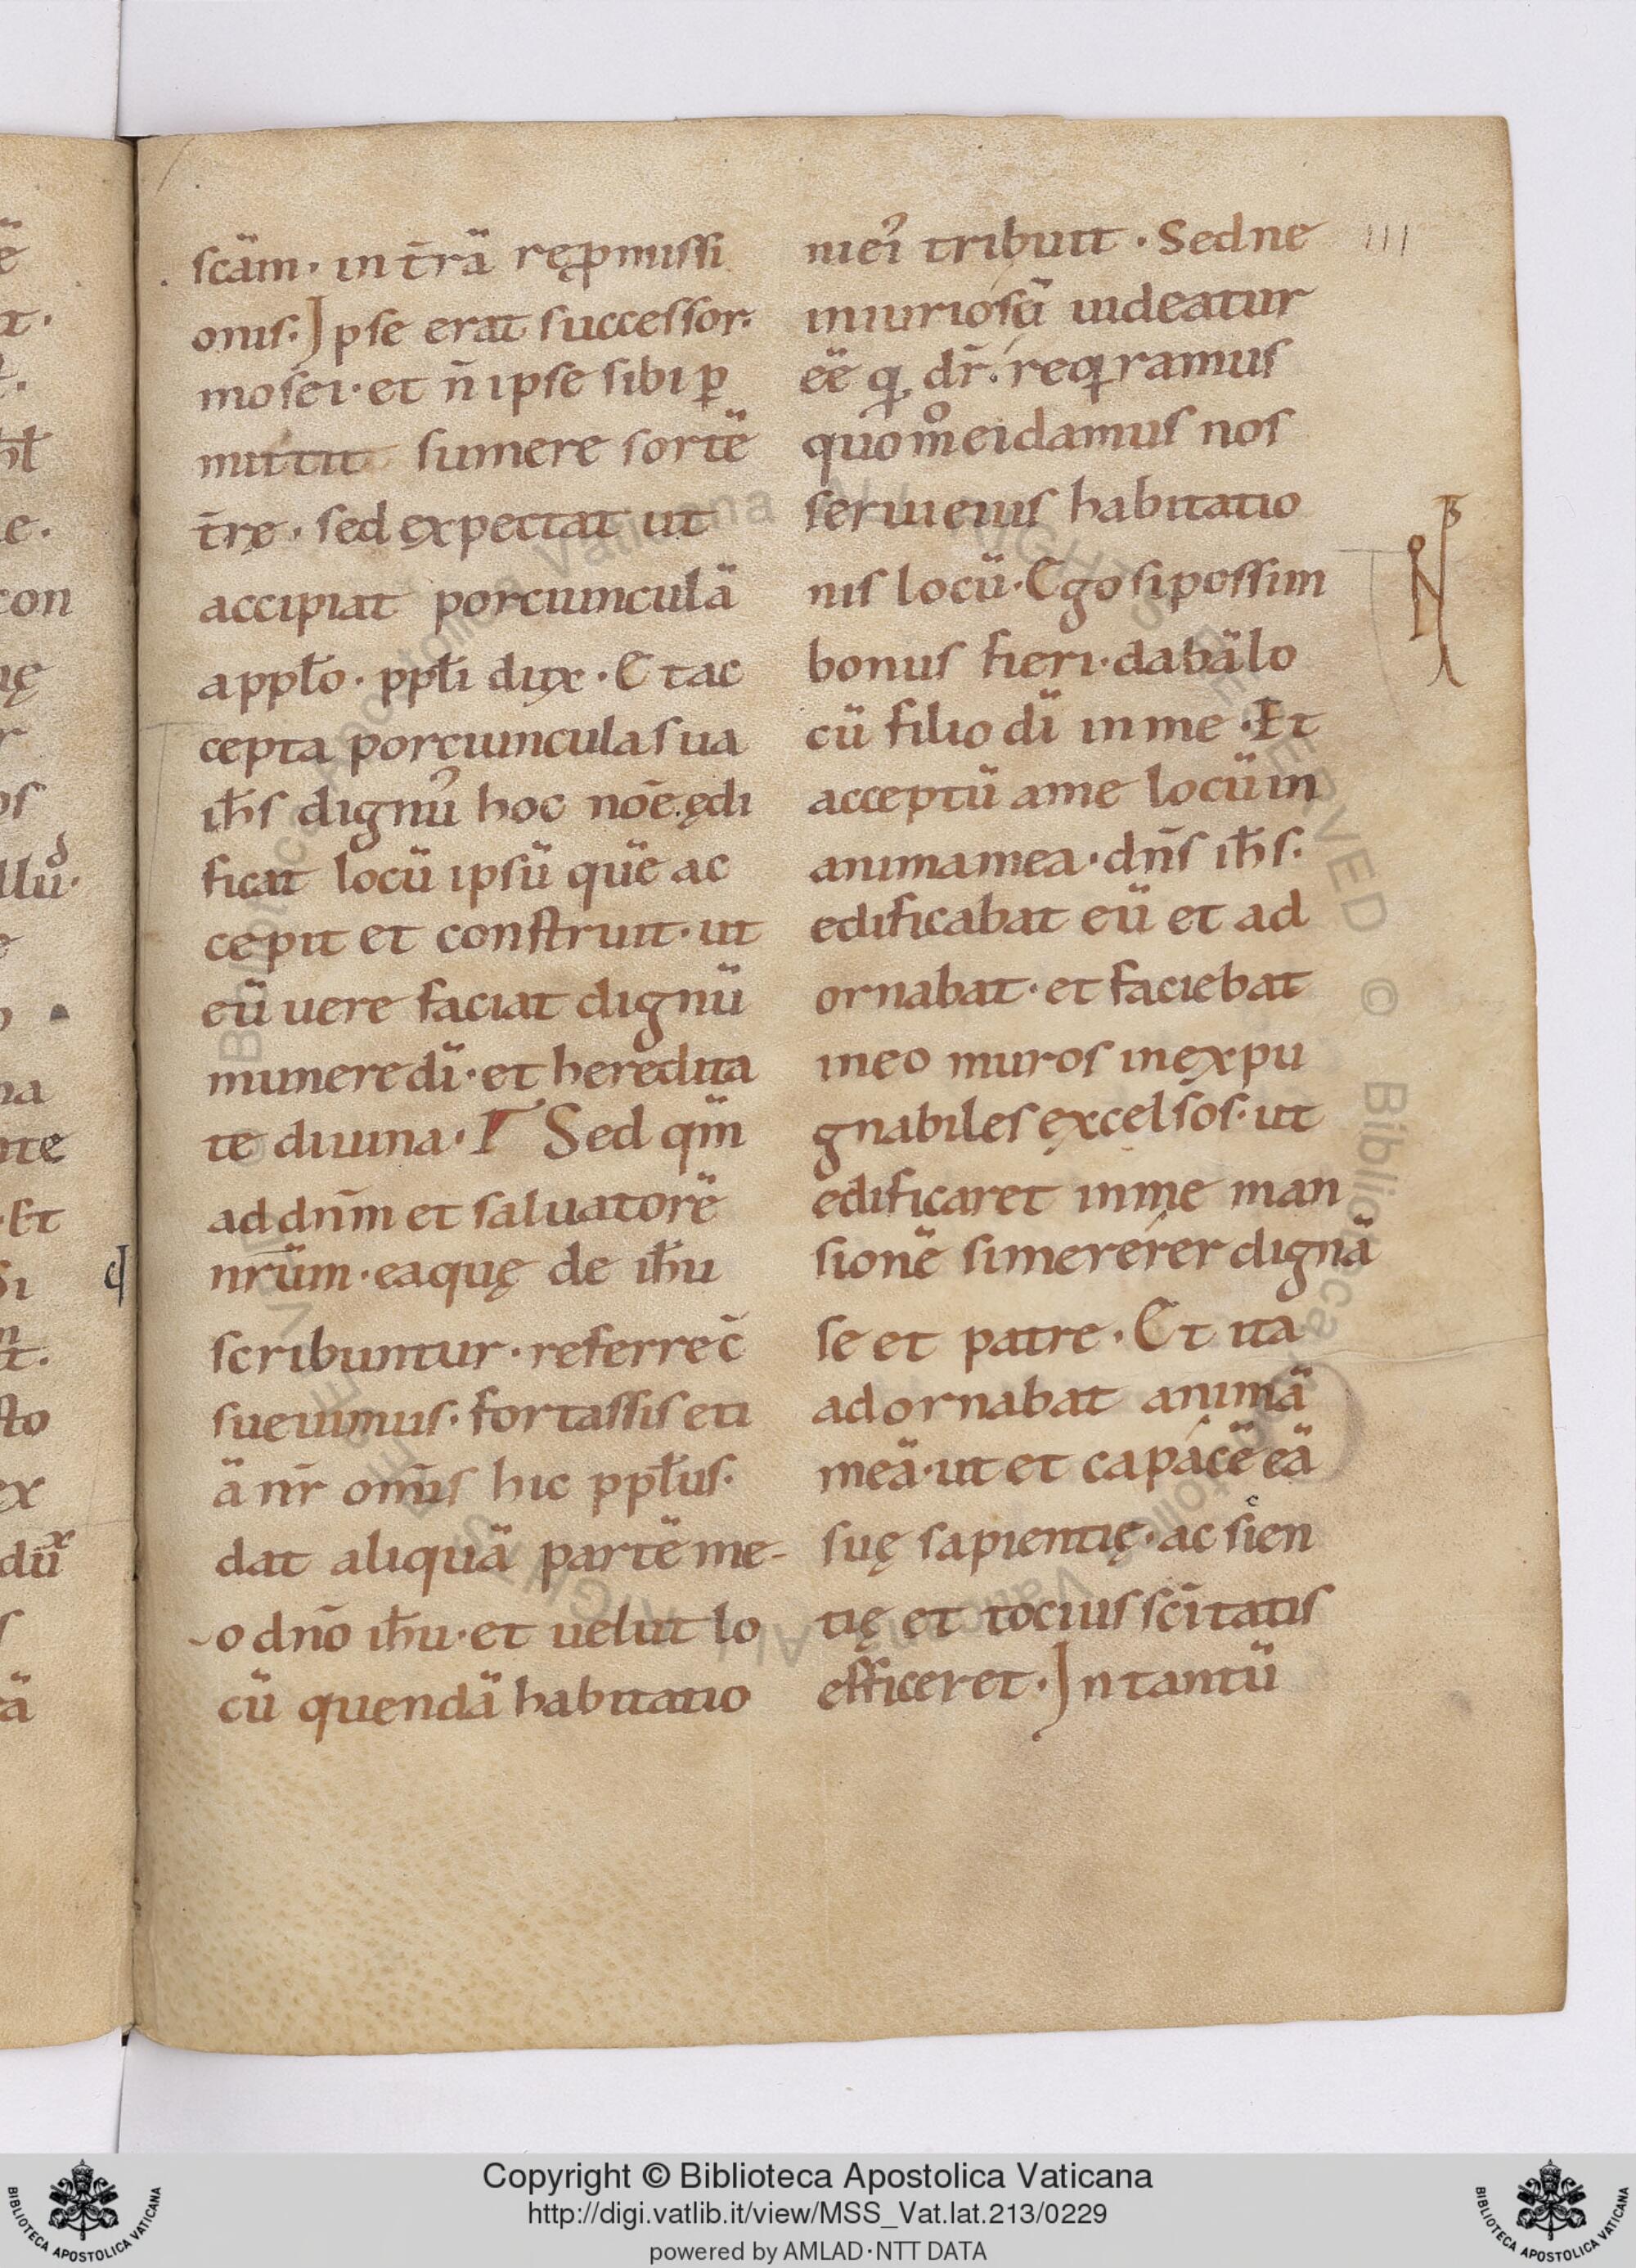 scā́m · in t̄rā rep̱missi
onis · Ipse erat successor ·
mosei · et n̄ ipse sibi ꝑ
mittit sumere sortē
t̄rę · sed expectat ut
accipiat portiunculā
a ppło · ppłi dux · Et ac
cepta portiuncula sua
ih̄s dignu᷎ hoc nōe · ędi
ficat locū ipsū quē ac
cepit et construit · ut
eū uere faciat dignū
munere dī · et heredita
te diuina · Sed qm̄
ad dnm̄ et saluatorē
nrūm · ea quę de ih̄u
scribuntur · referre c̄
sueuimus · fortassis eti
ā nr̄ omīs hic ppłus ·
dat aliquā partē me-
o dnō ih̄u · et uelut lo
cū quendā habitatio
niei tribuit · Sed ne
iniuriosā uideatur
eē ꝙ dr̄ · reqramus
quom̊ ei damus nos
serui eius habitatio
nis locū · Ego si possim
bonus fieri · dabā lo
cū filio dī in me · Et
acceptū a me locū in
anima mea · dn̄s ih̄s ·
edificabat eū et ad
ornabat · et faciebat
in eo muros inexpu
gnabiles excelsos · ut
edificaret in me man
sionē si mererer dignā
se et patre · Et ita
adornabat animā
meā · ut et capacē eā
suę sapientię · ac scien
tię et tocius scī̄tatis
efficeret · In tantū
III
Copyright © Biblioteca Apostolica Vaticana
http://digi.vatlib.it/view/MSS_Vat.lat.213/0229
powered by AMLAD·NTT DATA
BIBLIOTECA APOSTOLICA VATICANA
BIBLIOTECA APOSTOLICA VATICANA